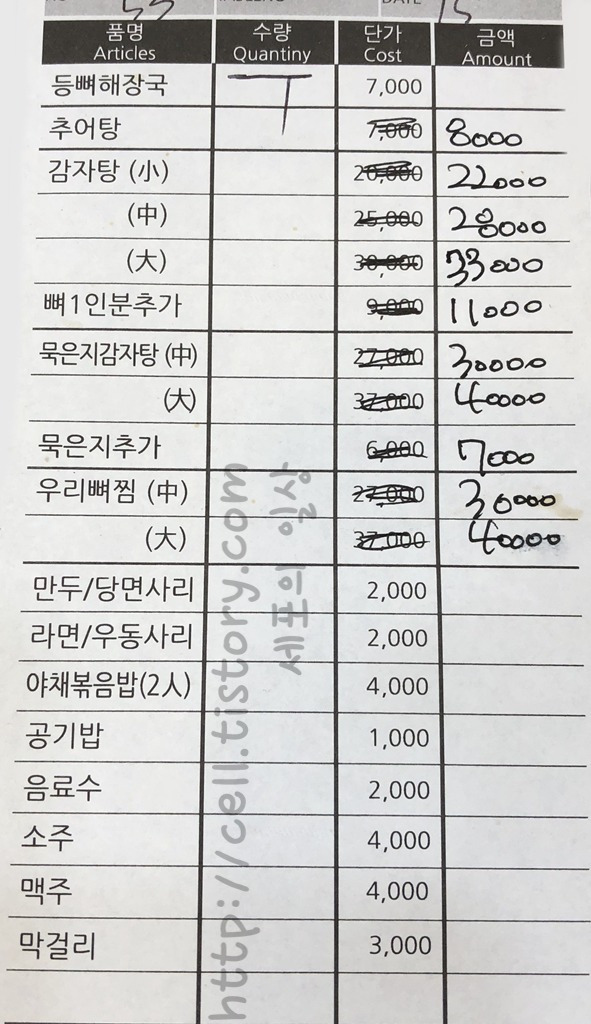 55 15
품명 수량 단가 금액
Articles Quantiny Cost Amount
등뼈해장국 ㅜ 7,000
추어탕 7,000 8000
감자탕 (小) 20,000 22000
(中) 25,000 28000
(大) 30,000 33000
뼈1인분추가 9,000 11000
묵은지감자탕 (中) 27,000 30000
(大) 37,000 40000
묵은지추가 6,000 7000
우리뼈찜 (中) 27,000 30000
(大) 37,000 40000
만두/당면사리 2,000
라면/우동사리 2,000
야채볶음밥(2人) 4,000
공기밥 1,000
음료수 2,000
소주 4,000
맥주 4,000
막걸리 3,000
http://cell.tistory.com
세포의 일상